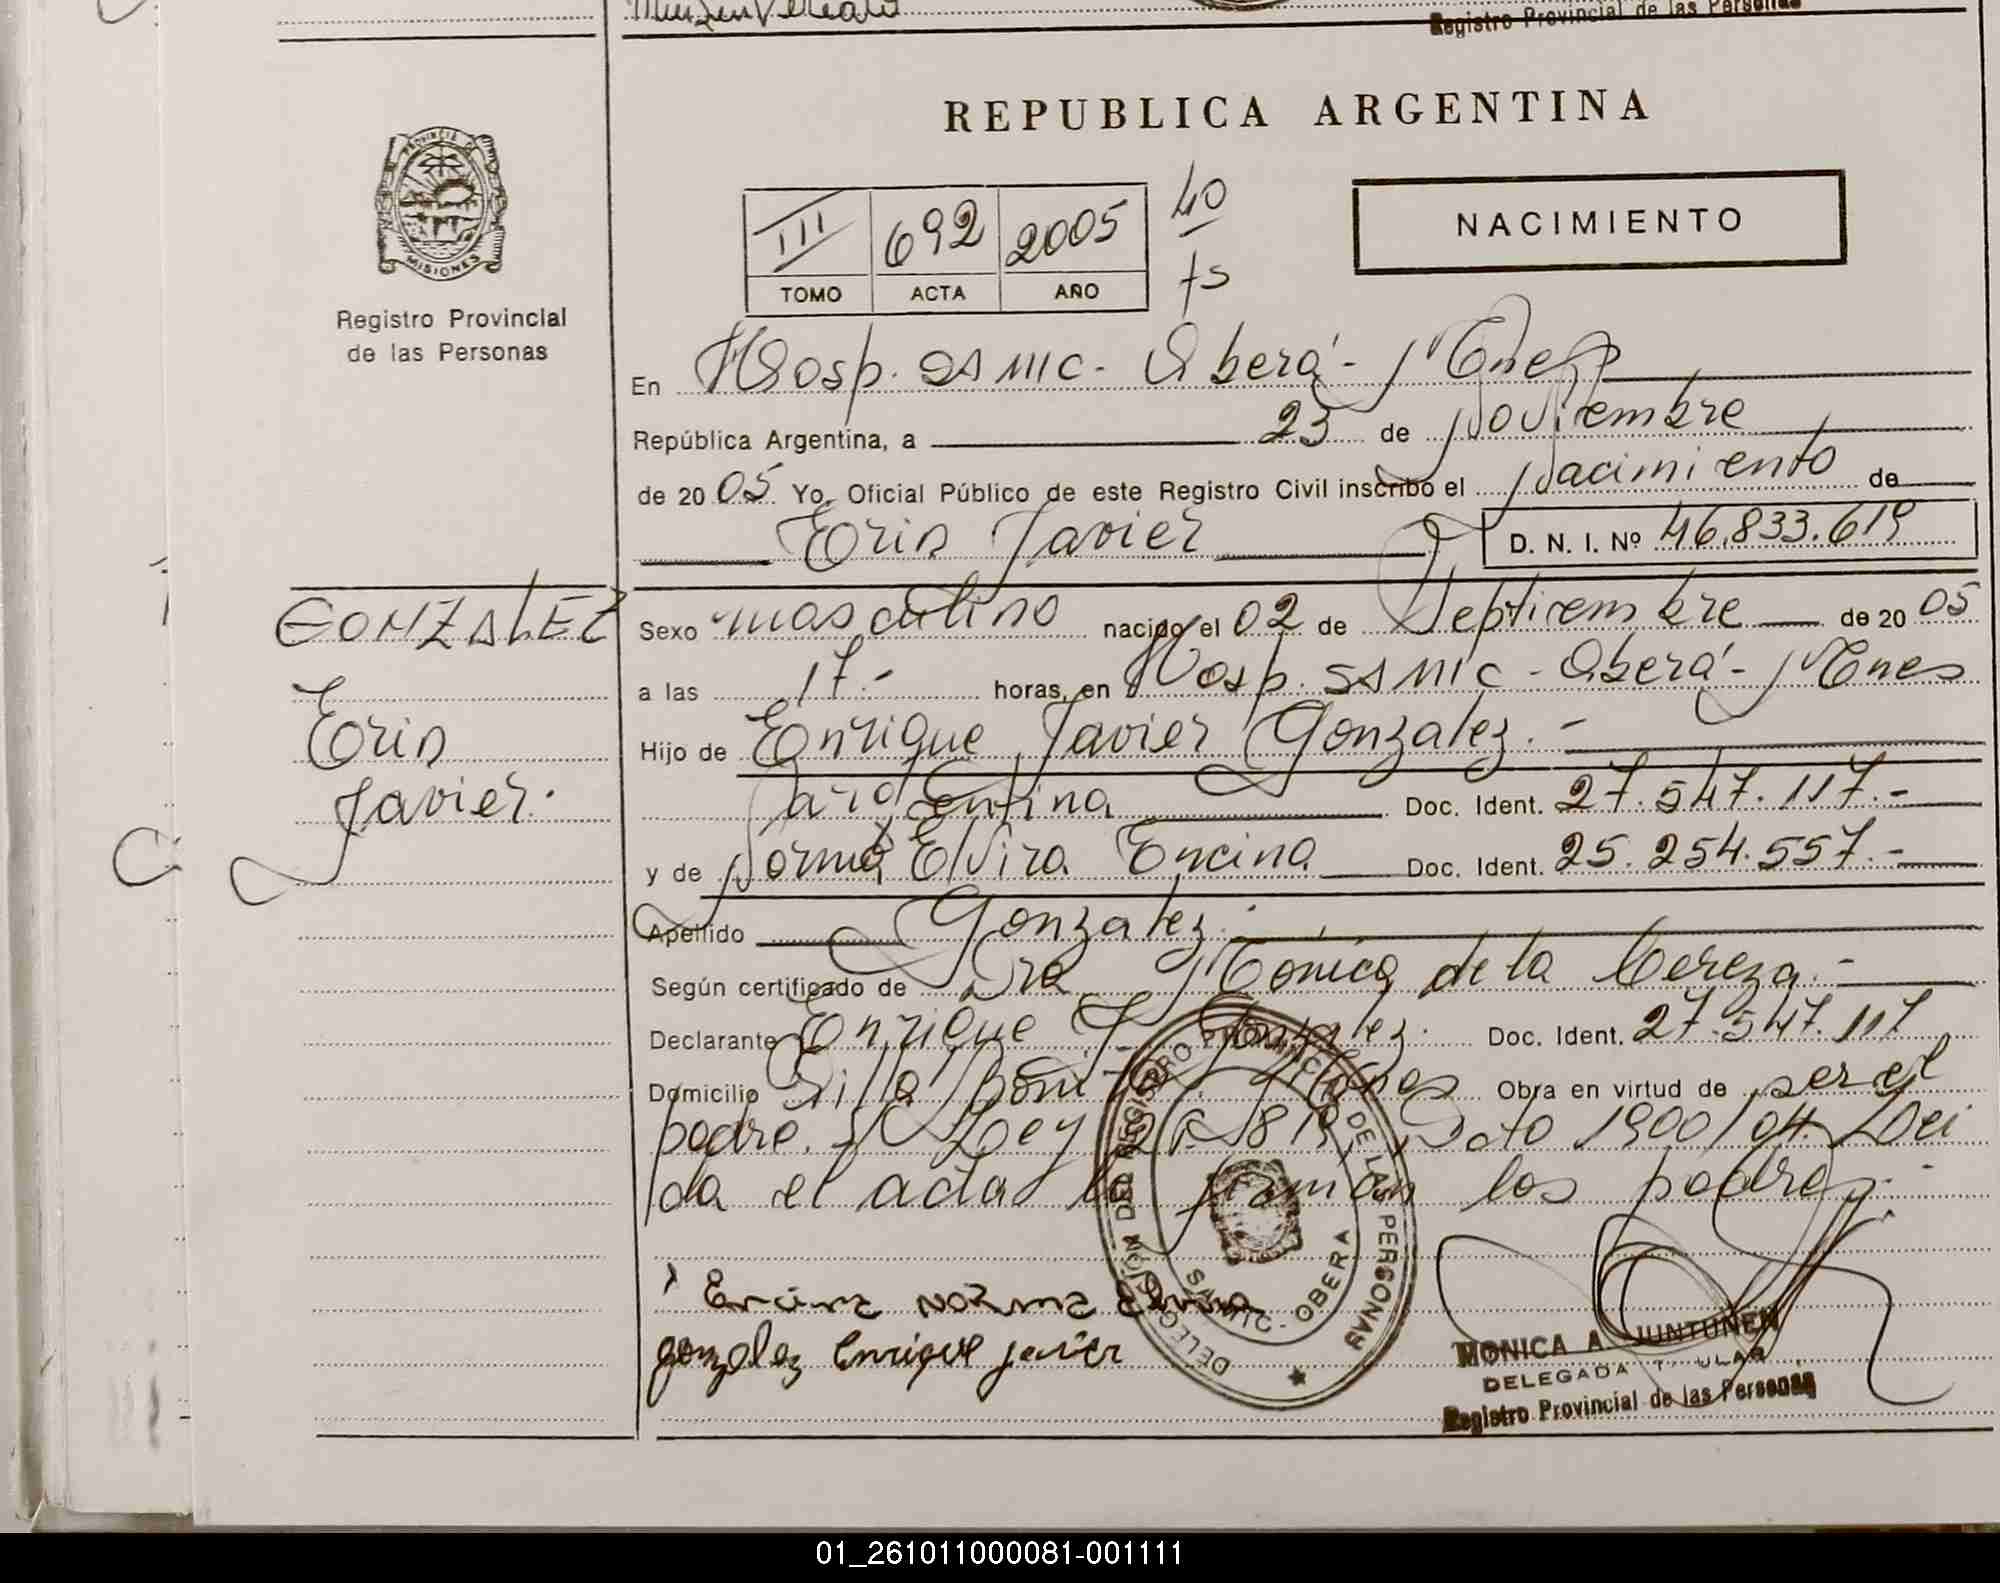 Registro Provincial de las Personas
PROVINCIA DE
MISIONES
Registro Provincial
de las Personas
REPUBLICA ARGENTINA
NACIMIENTO
III 692 2005
TOMO ACTA AÑO
40
fs
En Hosp. SAMIC - Oberá - Mnes
República Argentina, a 23 de Noviembre
de 2005 Yo, Oficial Público de este Registro Civil inscribo el Nacimiento de
Eris Javier D. N. I. Nº 46.833.619
GONZALEZ
Eris
Javier.
Sexo masculino nacido el 02 de Septiembre de 2005
a las 17.- horas, en Hosp. SAMIC - Oberá - Mnes
Hijo de Enrique Javier Gonzalez.-
Argentina Doc. Ident. 27.547.117.-
y de Norma Elvira Encina Doc. Ident. 25.254.557.-
Apellido Gonzalez.
Según certificado de Dra Mónica de la Cereza.-
Declarante Enrique J. Gonzalez. Doc. Ident. 27.547.117
Domicilio Villa Bonita Mnes Obra en virtud de ser el
padre. S/ Ley 25.819, Dcto 1900/04. Lei
da el acta la firman los padres.
Encina Norma Elvira
gonzalez Enrique javier
DELEGACIÓN DEL REGISTRO PROVINCIAL DE LAS PERSONAS
SAMIC - OBERA
MONICA A. JUNTUNEN
DELEGADA TITULAR
Registro Provincial de las Personas
01_261011000081-001111